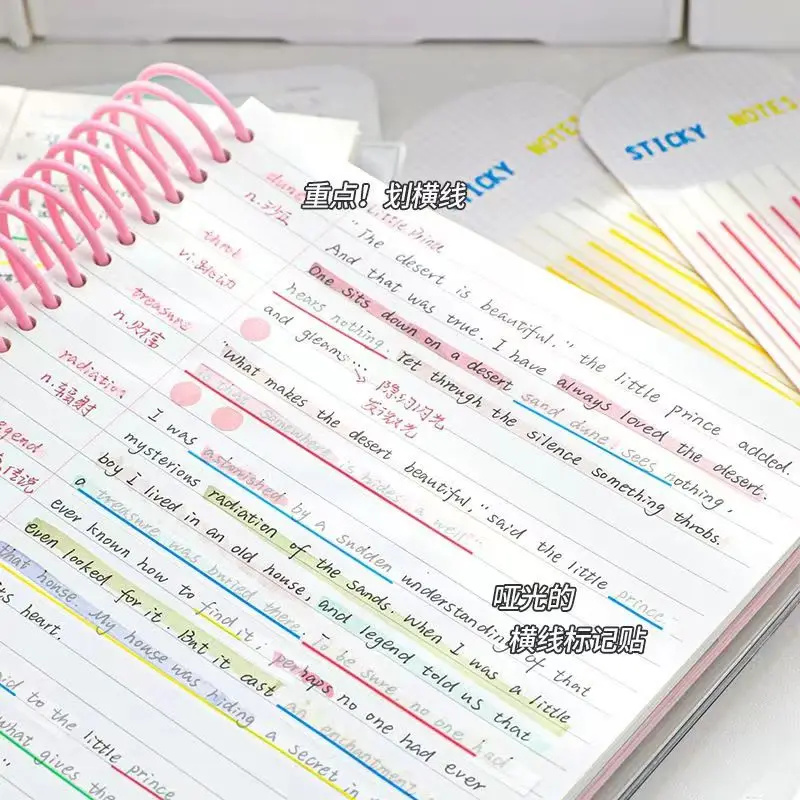 STICKY NOTES
STICKY NOTES
重点！划横线
Little Prince
"The desert is beautiful," the little prince added.
And that was true. I have always loved the desert.
One sits down on a desert sand dune, sees nothing,
hears nothing. Yet through the silence something throbs.
and gleams...
隐约闪光
发微光
"What makes the desert beautiful," said the little prince.
is that somewhere it hides a well..."
I was astonished by a sudden understanding of that
mysterious radiation of the sands. When I was a little
boy I lived in an old house, and legend told us that
a treasure was buried there. To be sure, no one had
ever known how to find it; perhaps no one had ever
even looked for it. But it cast an enchantment
that house. My house was hiding a secret in
its heart.
said to the little prince
what gives the
dune
n.沙丘
throb
vi.跳动
treasure
n.财富
radiation
n.辐射
legend
哑光的
横线标记贴